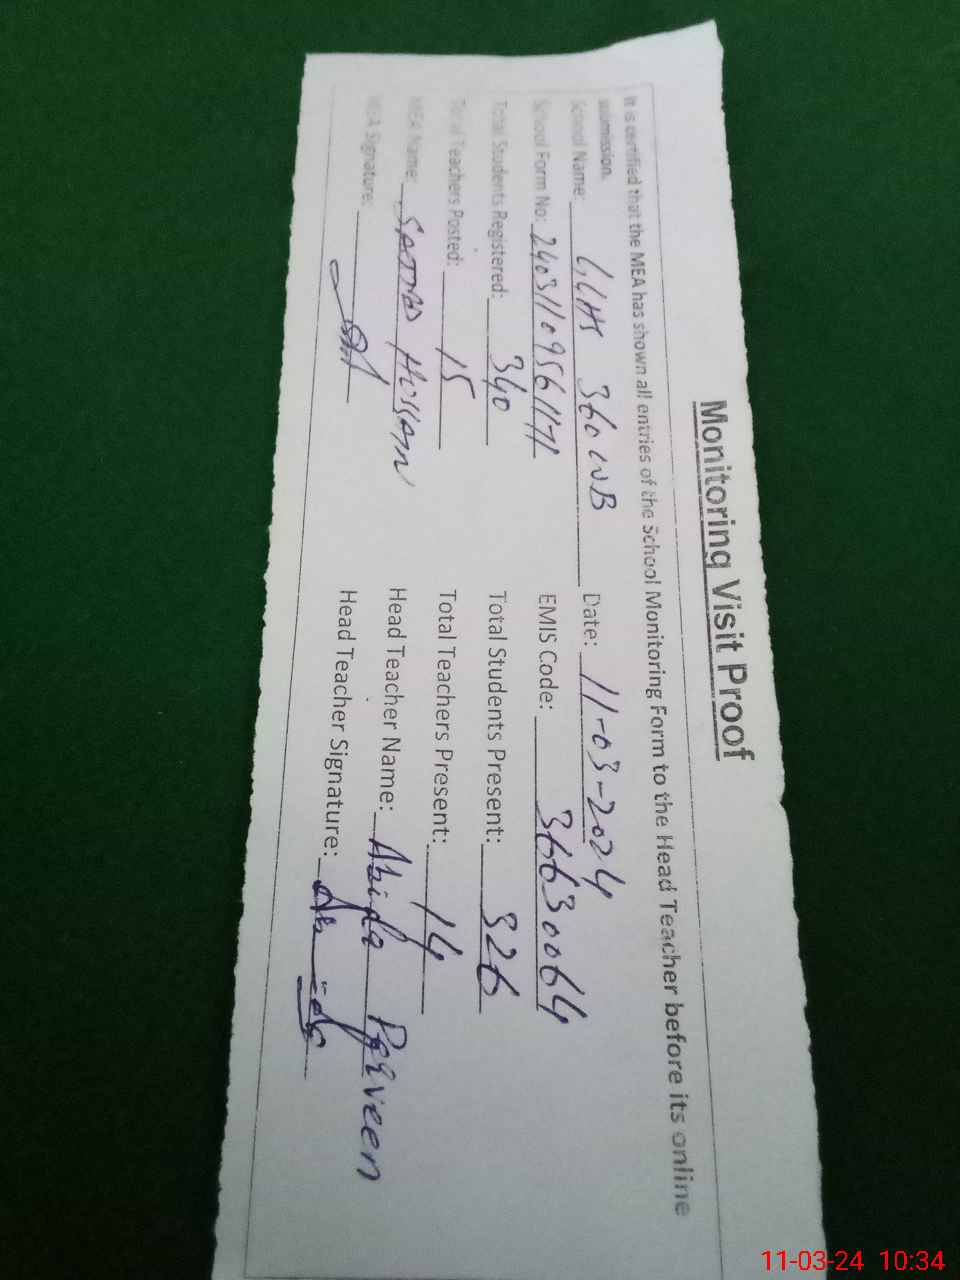 Monitoring Visit Proof
It is certified that the MEA has shown all entries of the School Monitoring Form to the Head Teacher before its online
submission.
School Name: 360 WB Date: 11-03-2024
School Form No: EMIS Code: 36630064
Total Students Registered: 340 Total Students Present: 326
Total Teachers Posted: 15 Total Teachers Present: 14
MEA Name: Hussain Head Teacher Name: Abida Parveen
MEA Signature: Head Teacher Signature:
11-03-24 10:34